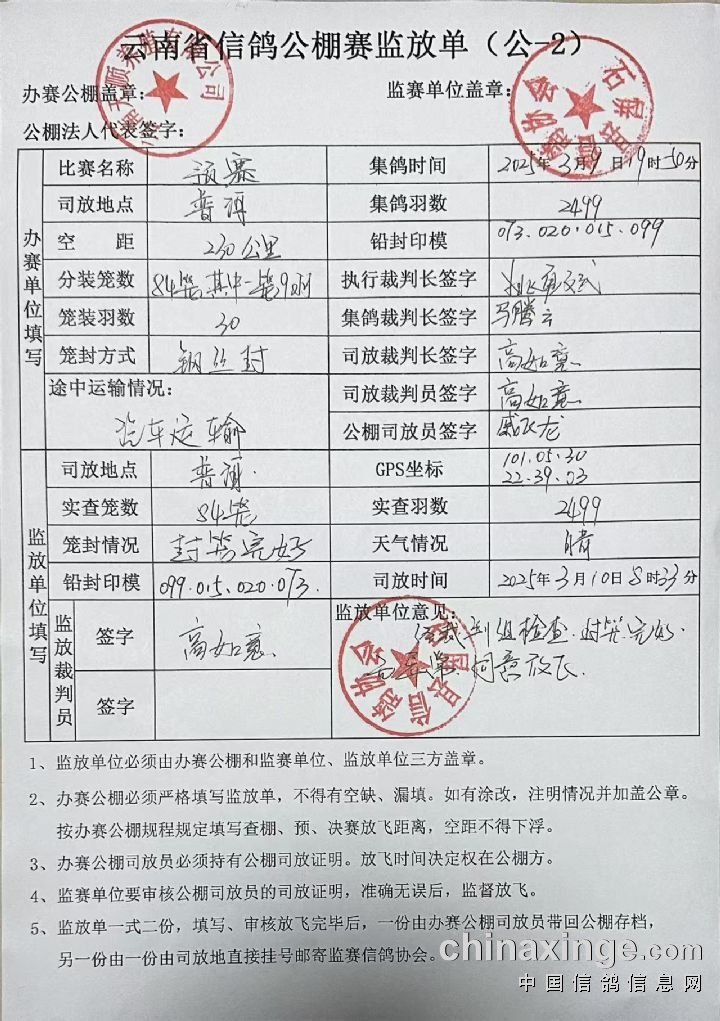 云南省信鸽公棚赛监放单（公-2）
办赛公棚盖章：
监赛单位盖章：
公棚法人代表签字：
办赛单位填写
比赛名称 预赛 集鸽时间 2025年3月9日19时50分
司放地点 普洱 集鸽羽数 2499
空 距 230公里 铅封印模 073.020.015.099
分装笼数 84笼其中一笼9羽 执行裁判长签字
笼装羽数 30 集鸽裁判长签字 马腾云
笼封方式 钢丝封 司放裁判长签字 高如意
途中运输情况： 司放裁判员签字 高如意
汽车运输 公棚司放员签字 戚飞龙
监放单位填写
司放地点 普洱. GPS坐标 101.05.30
22.39.03
实查笼数 84笼 实查羽数 2499
笼封情况 封笼完好 天气情况 晴
铅封印模 099.015.020.073. 司放时间 2025年3月10日8时33分
监放裁判员
签字 高如意
监放单位意见：
裁判组检查.封笼完好.
同意放飞.
签字
1、监放单位必须由办赛公棚和监赛单位、监放单位三方盖章。
2、办赛公棚必须严格填写监放单，不得有空缺、漏填。如有涂改，注明情况并加盖公章。
按办赛公棚规程规定填写查棚、预、决赛放飞距离，空距不得下浮。
3、办赛公棚司放员必须持有公棚司放证明。放飞时间决定权在公棚方。
4、监赛单位要审核公棚司放员的司放证明，准确无误后，监督放飞。
5、监放单一式二份，填写、审核放飞完毕后，一份由办赛公棚司放员带回公棚存档，
另一份由一份由司放地直接挂号邮寄监赛信鸽协会。
chinaxinge.com
中国信鸽信息网